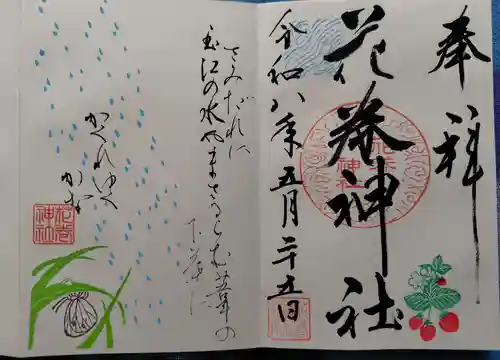 奉拝
花巻神社
令和八年五月二五日
さみだれに
玉江の水やまさるらむ芦の
下葉の
かくれゆく
かな
花巻
神社
花巻
神社